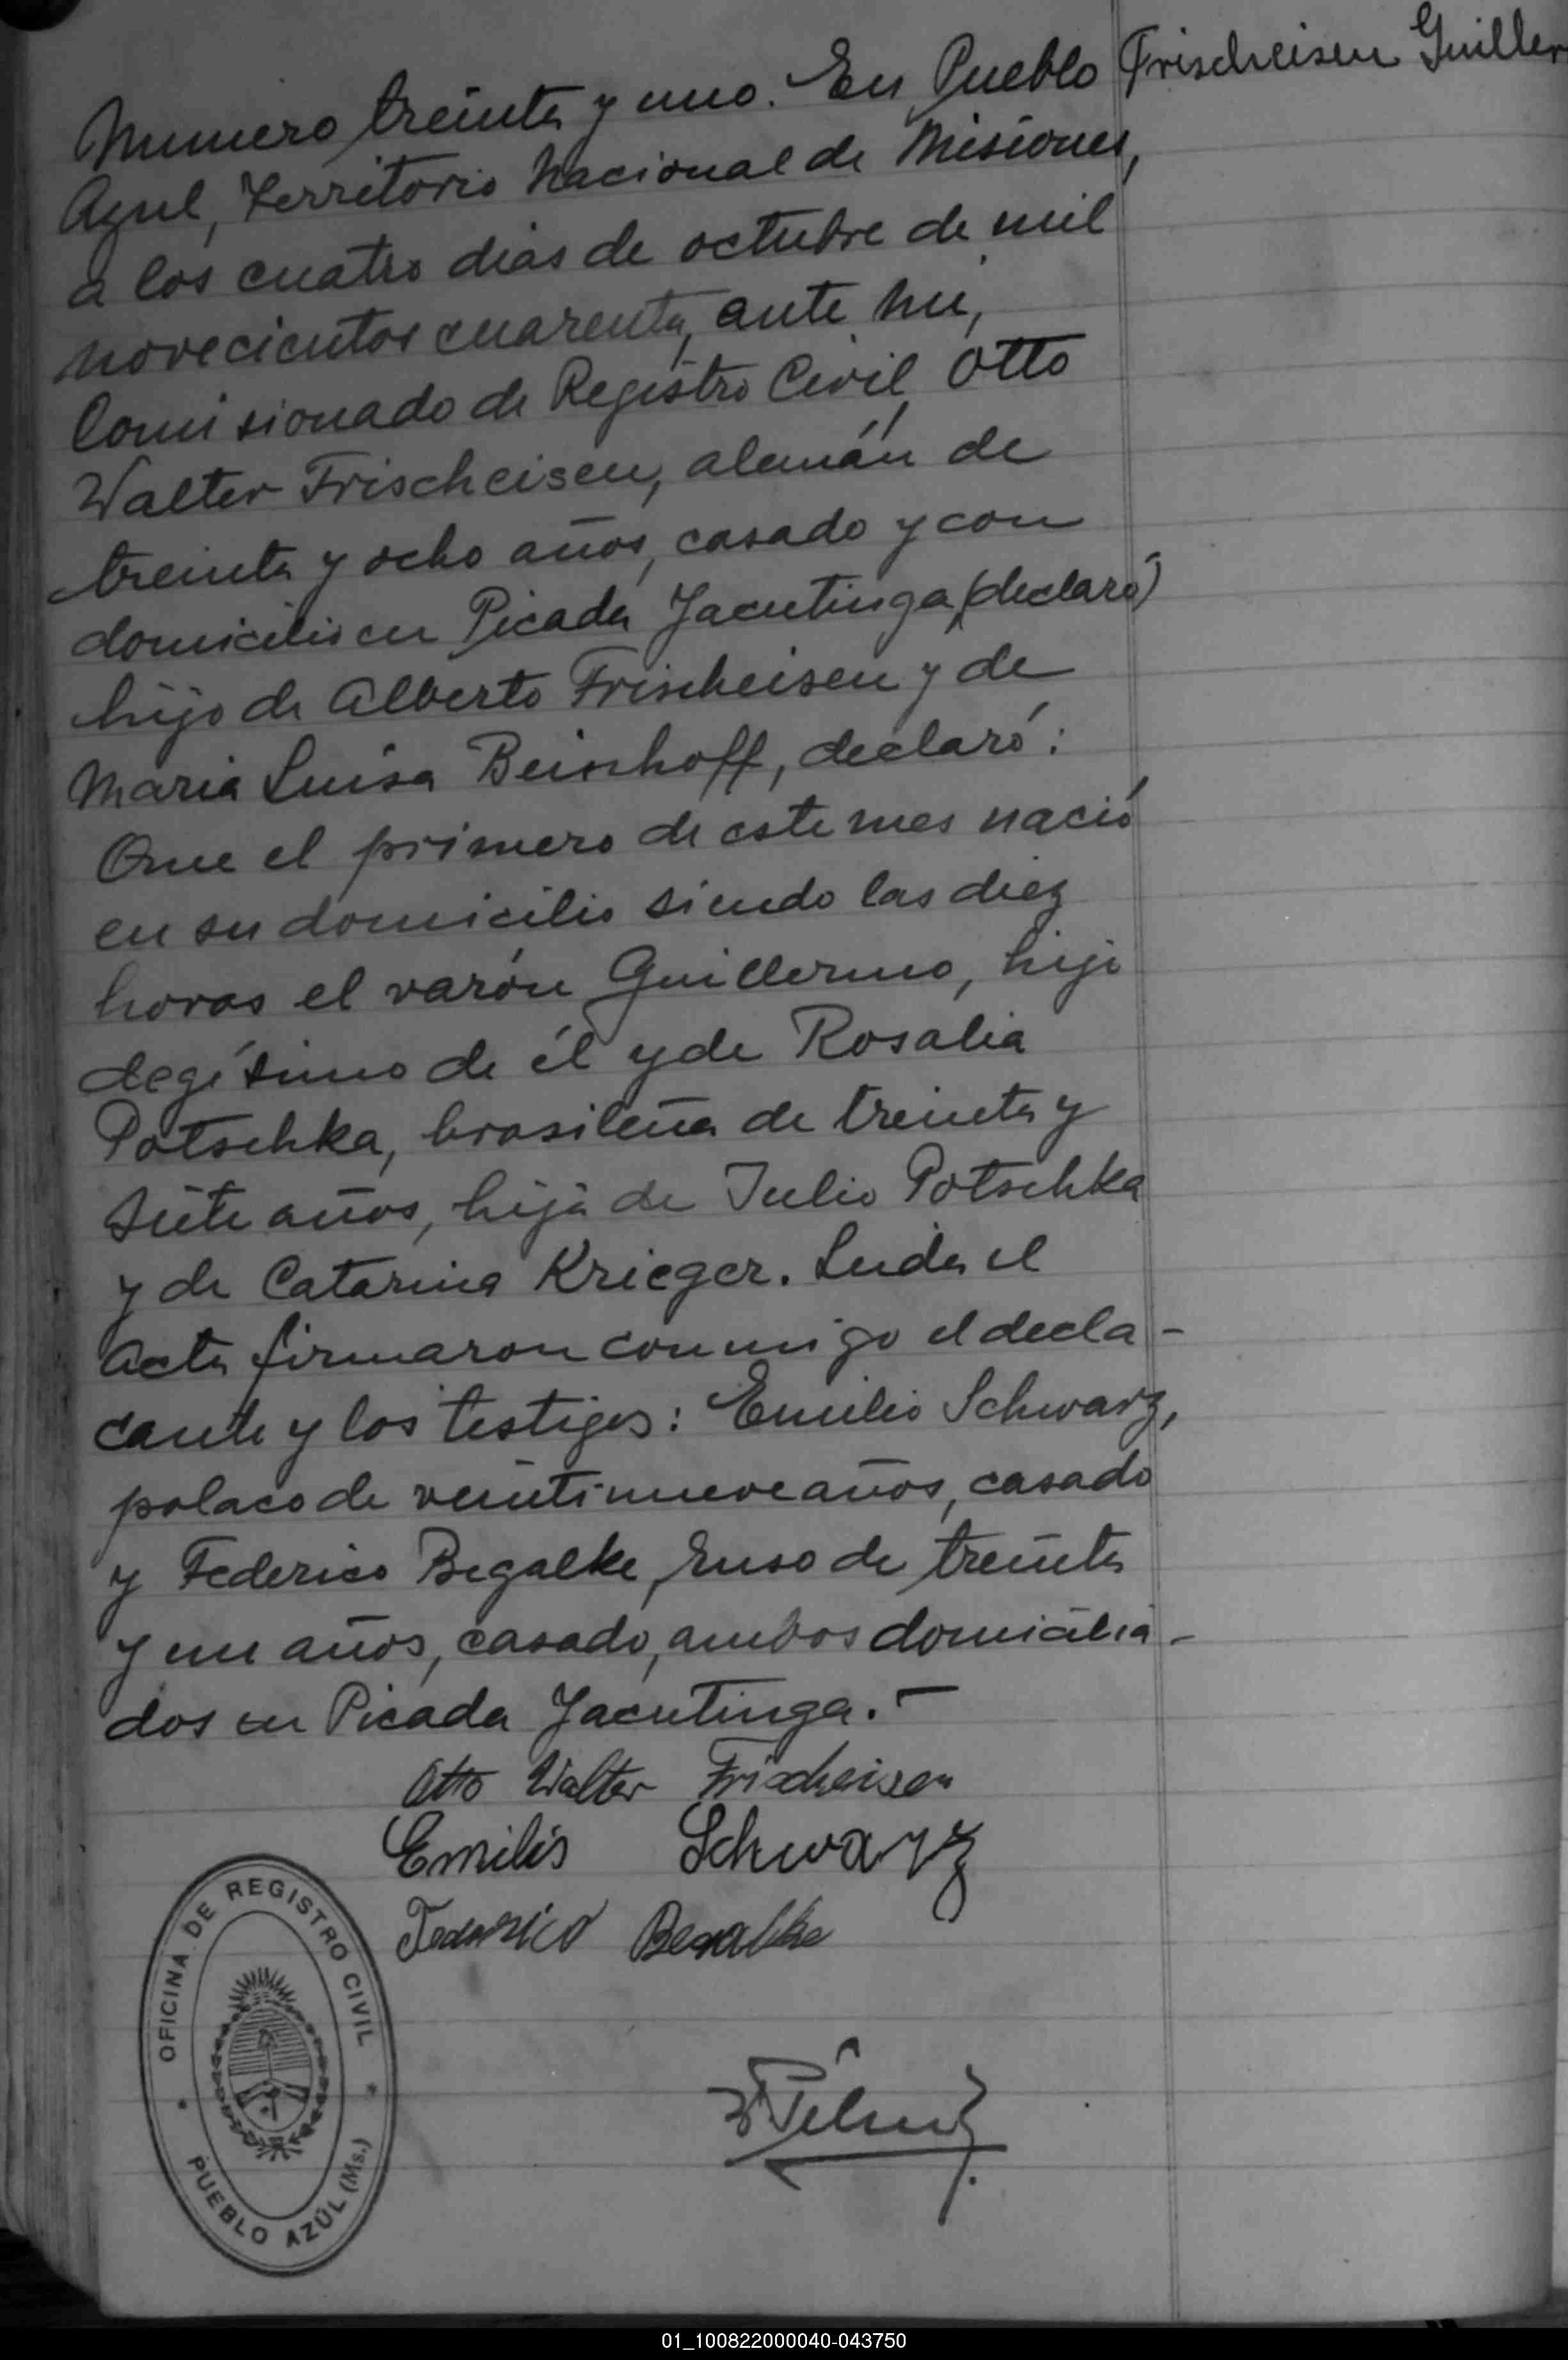 Frischeisen Guiller
Numero treinta y uno. En Pueblo
Azul, Territorio Nacional de Misiones,
a los cuatro dias de octubre de mil
novecientos cuarenta, ante mi,
Comisionado de Registro Civil, Otto
Walter Frischeisen, alemán de
treinta y ocho años, casado y con
domicilio en Picada Yacutinga (declaró)
hijo de Alberto Frischeisen y de
Maria Luisa Beinhoff, declaró:
Que el primero de este mes nació
en su domicilio siendo las diez
horas el varón Guillermo, hijo
legítimo de él y de Rosalia
Potschka, brasileña de treinta y
siete años, hija de Julio Potschka
y de Catarina Krieger. Leida el
Acta firmaron conmigo el decla-
rante y los testigos: Emilio Schwarz,
polaco de veintinueve años, casado
y Federico Begalke, ruso de treinta
y un años, casado, ambos domicilia-
dos en Picada Yacutinga.-
Otto Walter Frischeisen
Emilio Schwarz
Federico Begalke
OFICINA DE REGISTRO CIVIL
* PUEBLO AZÚL (Ms.) *
01_100822000040-043750